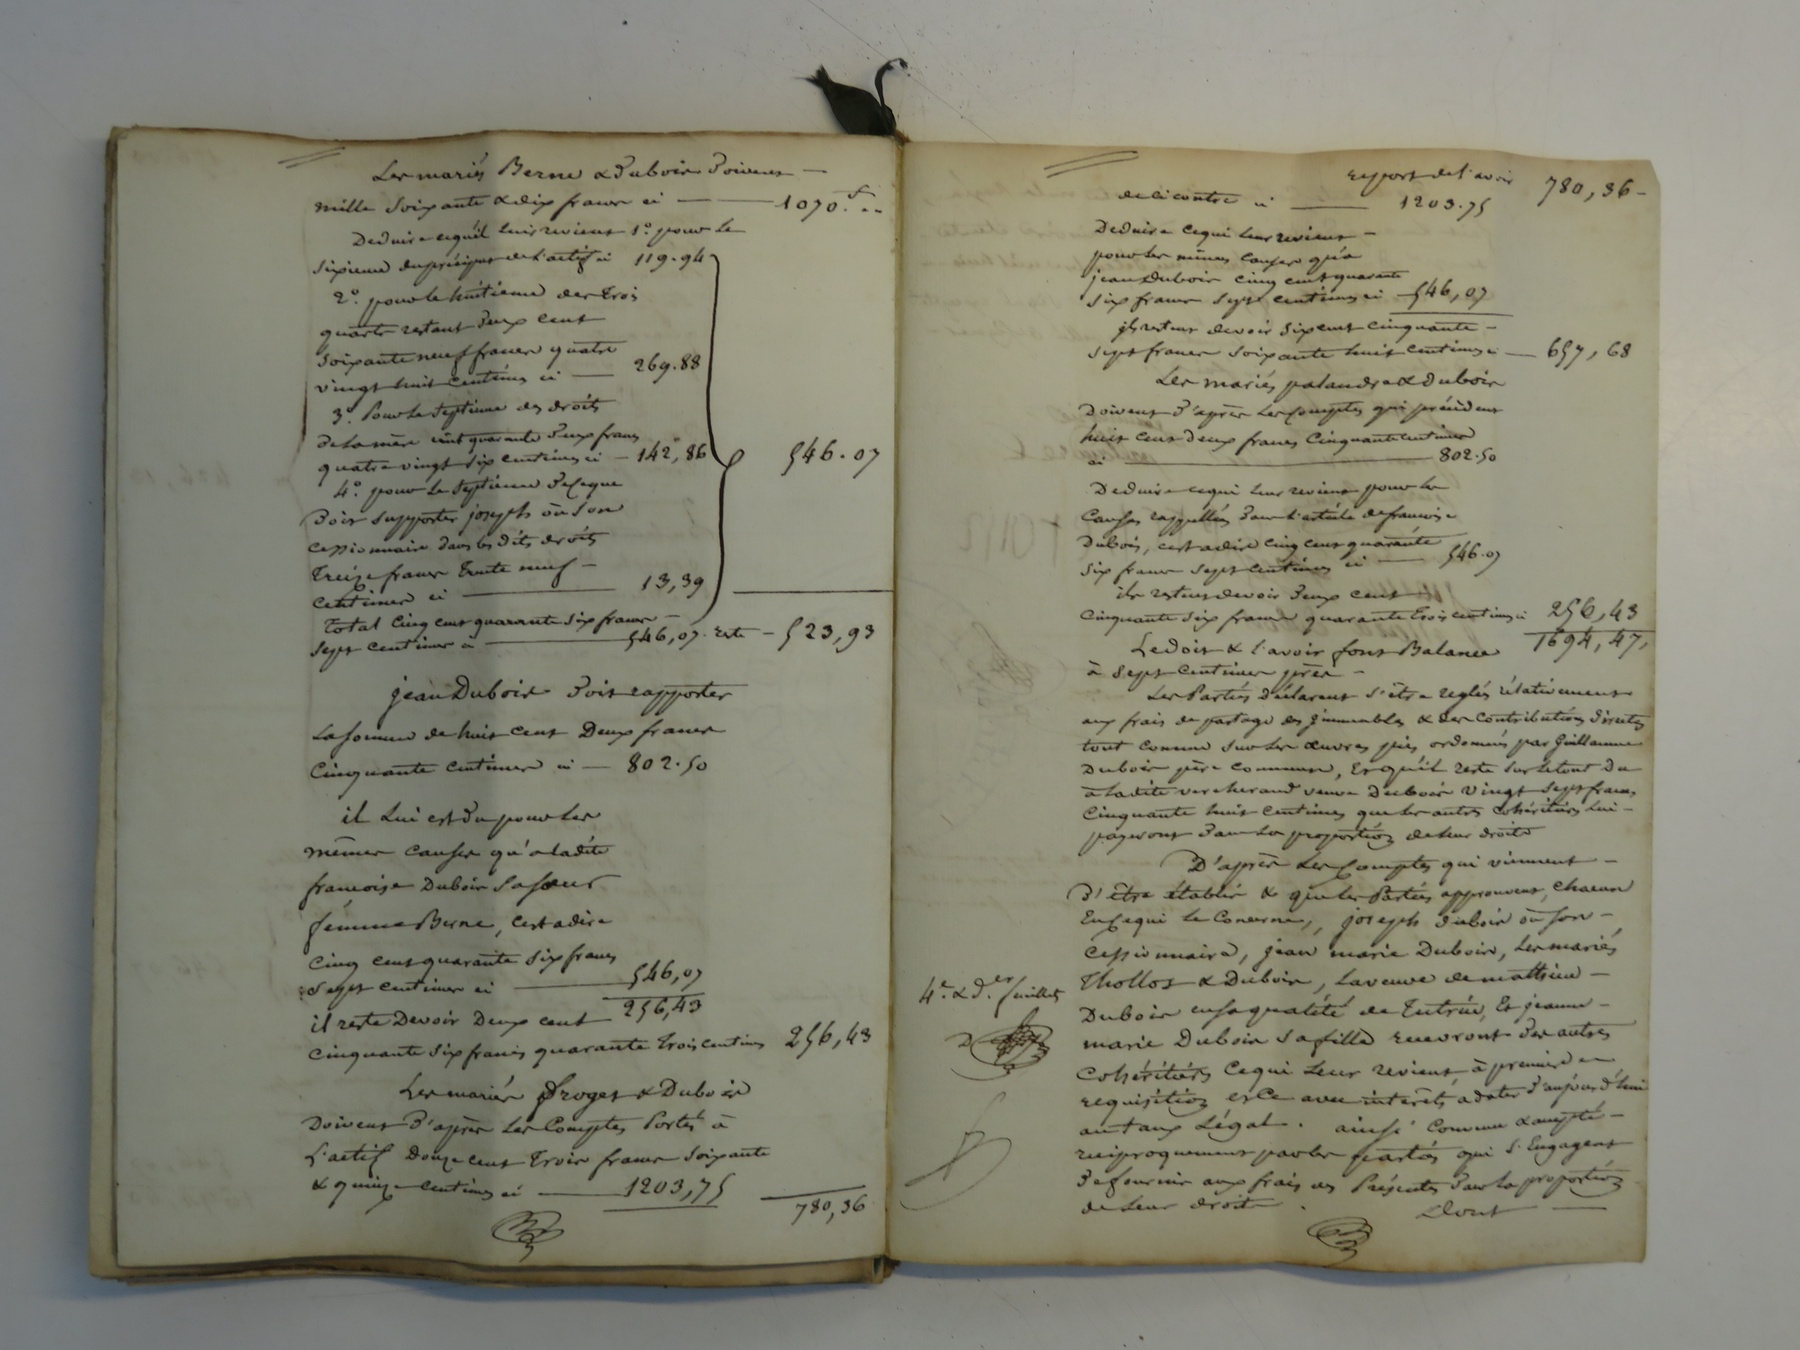 Les mariés Berne & Dubois Doivent —
mille soixante & dix francs ci — 1070.f ..
Deduire cequ'il leur revient 1.o pour le
sixieme du préciput de l'actif ci 119.94
2.o pour le huitieme des trois
quarts restant Deux cent
soixante neuf francs quatre
vingt huit centimes ci — 269.88
3.o Pour le septieme des droits
de la mère cent quarante Deux francs
quatre vingt six centimes ci — 142,86
546.07
4.o pour le septieme De ce que
Doit supporter joseph ou son
cessionnaire dans les dits droits
treize francs trente neuf —
centimes ci — 13,39
Total cinq cent quarante six francs —
sept centimes ci — 546,07. reste — 523,93
jean Dubois Doit rapporter
la somme de huit cent Deux francs
cinquante centimes ci — 802.50
il lui est Du pour les
mêmes causes qu'a ladite
françoise Dubois sa sœur
femme Berne, cest adire
cinq cent quarante six francs
sept centimes ci — 546,07
il reste Devoir Deux cent 256,43
cinquante six francs quarante trois centimes 256,43
Les mariés Droget & Dubois
Doivent D'après les Comptes Portés à
L'actif Douze cent trois francs soixante
& quinze centimes ci — 1203,75
780,36
report de l'avoir 780,36 —
de ci contre ci — 1203.75
Deduire ce qui leur revient —
pour les mêmes causes qu'a
jean Dubois cinq cent quarante
six francs sept centimes ci — 546,07
ils restent devoir six cent cinquante —
sept francs soixante huit centimes ci — 657,68
Les mariés palandre & Dubois
Doivent D'après les Comptes qui précédent
huit cent deux francs cinquante centimes
ci — 802.50
Deduire ce qui leur revient pour les
causes rappellées Dans l'article de françoise
Dubois, cest adire cinq cent quarante
six francs sept centimes ci — 546.07
ils restent devoir Deux cent
cinquante six francs quarante trois centimes ci 256,43
1694,47,
Le doit & l'avoir font Balance
à sept centimes près —
Les Parties déclarent s'être reglés rélativement
aux frais de partage des immeubles & des contributions directes
tout comme sur les œuvres pies ordonnées par Guillaume
Dubois père commun, Et qu'il reste sur le tout du
a ladite vercherand veuve Dubois vingt sept francs
cinquante huit centimes que les autres cohéritiers lui —
payeront Dans la proportion de leur droits
D'après les Comptes qui viennent —
D'être établis & que les Parties approuvent, chacun
En ce qui le Concerne, joseph dubois ou son —
cessionnaire, jean marie Dubois, les mariés
Thollot & Dubois, la veuve de mathieu —
Dubois en sa qualité de tutrice, Et jeanne —
4.e & d.er feuillet
marie Dubois sa fille recevront Des autres
cohéritiers ce qui leur revient à premiere
requisition et ce avec intérêts a dater D'aujourd'hui
au taux Légal. ainsi convenu & accepté —
reciproquement par les parties qui s'Engagent
De fournir aux frais des Présentes Dans la proportion
de leur droits. Dont —